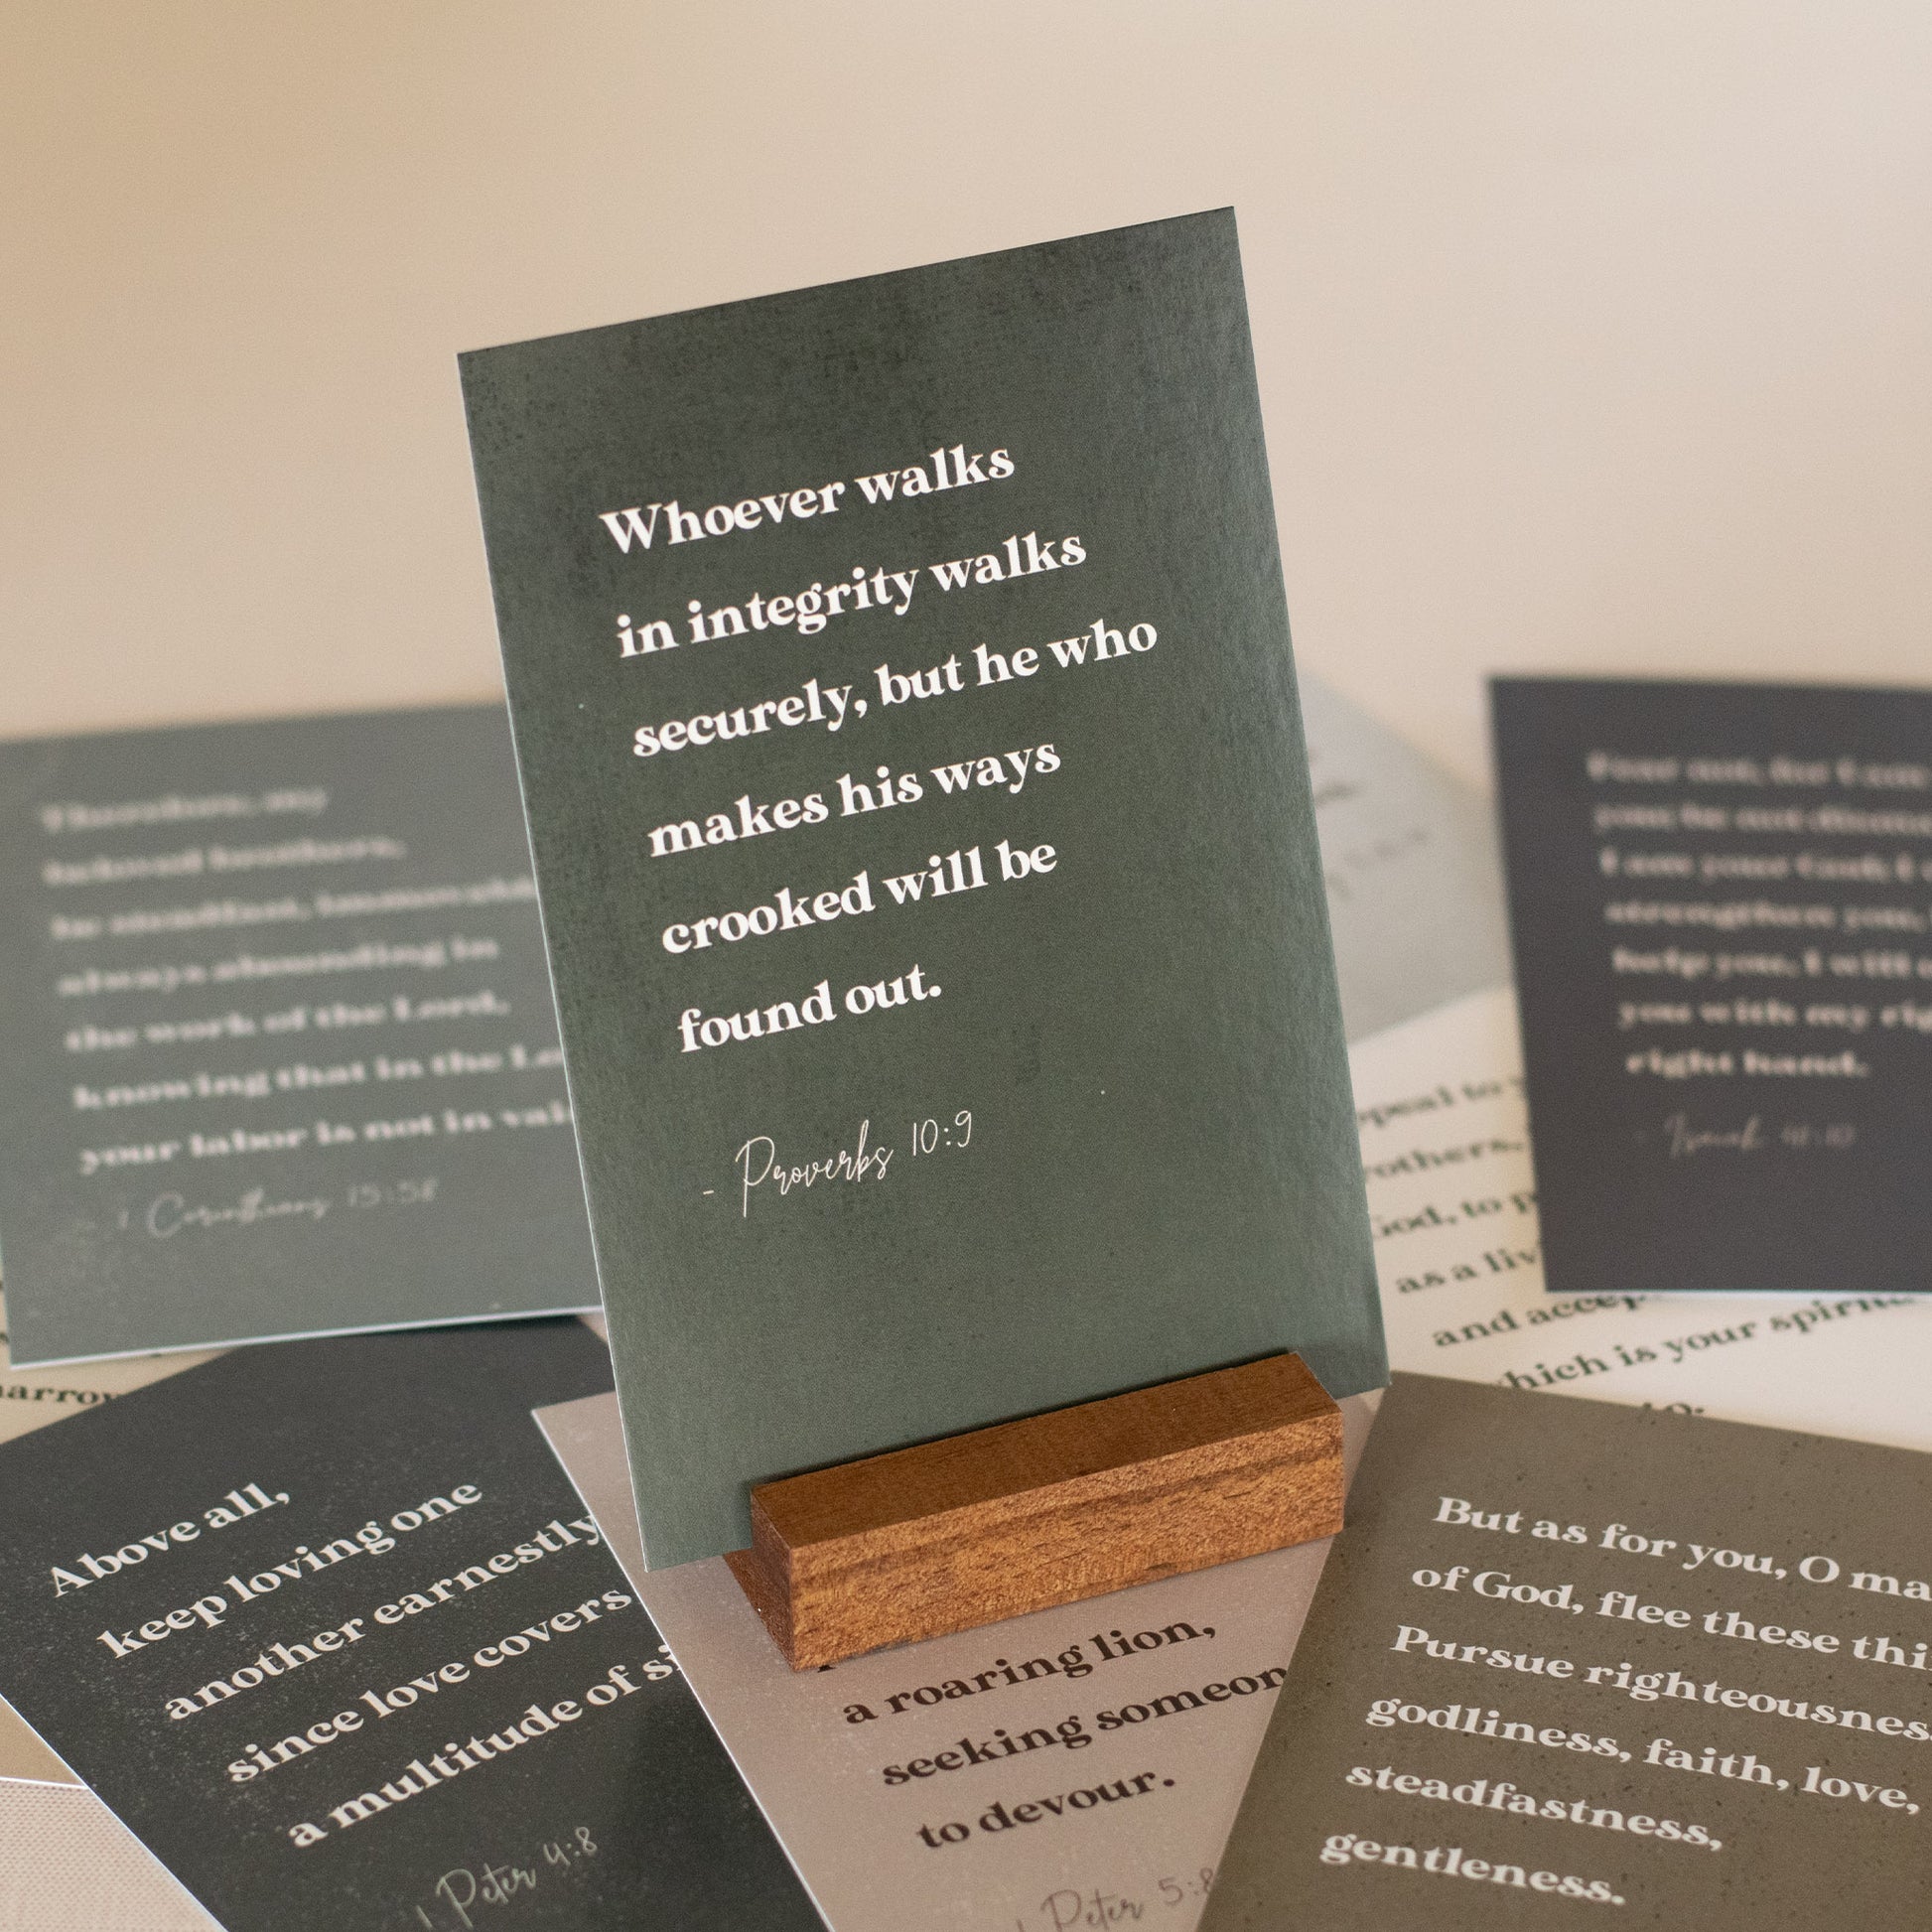 Whoever walks
in integrity walks
securely, but he who
makes his ways
crooked will be
found out.
- Proverbs 10:9
Therefore, my
beloved brothers,
be steadfast, immovable
always abounding in
the work of the Lord,
knowing that in the
your labor is not in
- 1 Corinthians 15:58
Fear not, for I am
you; be not
I am your God; I
strengthen you,
help you, I will
you with my
right hand.
- Isaiah 41:10
God, to
as a
and
which is your
Above all,
keep loving one
another earnestly
since love covers
a multitude of
1 Peter 4:8
a roaring lion,
seeking someon
to devour.
1 Peter 5:8
But as for you, O ma
of God, flee these thi
Pursue righteousnes
godliness, faith, love,
steadfastness,
gentleness.